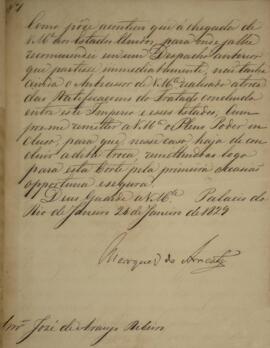 Como póde acontecer que á chegada de
V. M.ce aos Estados Unidos, para onde já lhe
recommendei em meu Despacho anterior
que partisse immediatamente, não tenha
ainda o Antecessor de V. M.ce realisado a troca
das Ratificaçoens do Tratado concluido
entre este Imperio e esses Estados, Cum-
pre-me remetter a V. M.ce o Pleno Poder in-
cluso, para que nesse caso haja de con-
cluir a dita troca, remettendo-as logo
para esta Corte pela primeira occasião
opportuna e segura.
Deus Guarde a V. M.ce Palacio do
Rio de Janeiro 24 de Janeiro de 1829
Marquez do Aracaty
Snr. José de Araujo Ribeiro